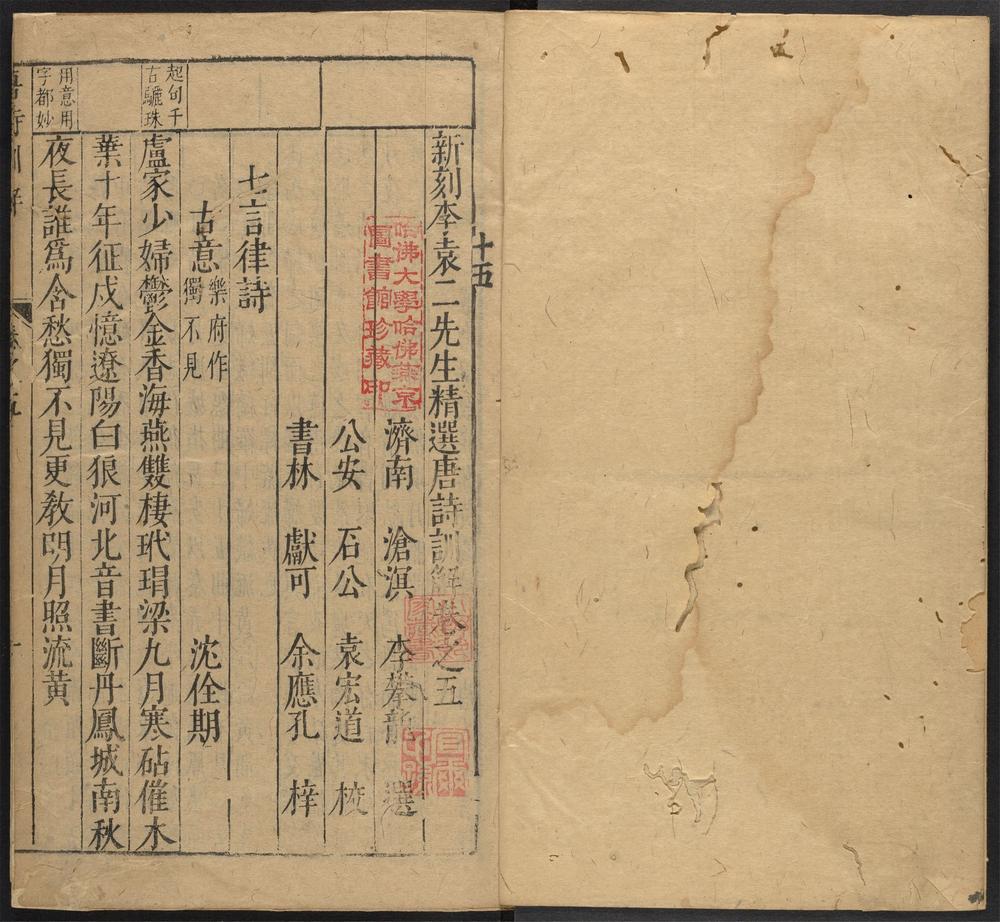 十五
新刻李袁二先生精選唐詩訓解卷之五
濟南 滄溟 李攀龍 選
公安 石公 袁宏道 校
書林 獻可 余應孔 梓
哈佛大學哈佛燕京
圖書館珍藏印
七言律詩
古意 樂府作獨不見 沈佺期
起句千
古驪珠
盧家少婦鬱金香海燕雙棲玳瑁梁九月寒砧催木
葉十年征戍憶遼陽白狼河北音書斷丹鳳城南秋
用意用
字都妙
夜長誰爲含愁獨不見更教明月照流黃